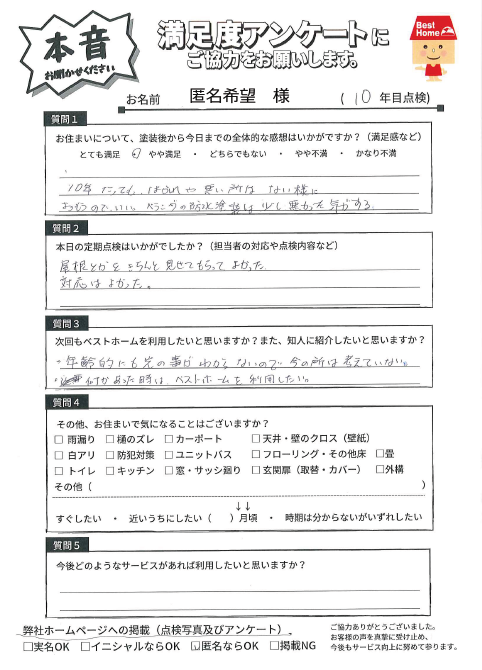 本音
お聞かせください
満足度アンケートに
ご協力をお願いします。
Best Home
お名前 匿名希望 様 ( 10 年目点検)
質問1
お住まいについて、塗装後から今日までの全体的な感想はいかがですか？（満足感など）
とても満足 ・ やや満足 ・ どちらでもない ・ やや不満 ・ かなり不満
10年たっても、はがれや悪い所はない様に
おもうので、いい。ベランダの防水塗装は少し悪かった気がする。
質問2
本日の定期点検はいかがでしたか？（担当者の対応や点検内容など）
屋根とかをきちんと見せてもらってよかった
対応はよかった。
質問3
次回もベストホームを利用したいと思いますか？また、知人に紹介したいと思いますか？
・年齢的にも先の事がわからないので今の所は考えていない。
・何かあった時は、ベストホームを利用したい。
質問4
その他、お住まいで気になることはございますか？
□ 雨漏り □ 樋のズレ □ カーポート □ 天井・壁のクロス（壁紙）
□ 白アリ □ 防犯対策 □ ユニットバス □ フローリング・その他床 □畳
□ トイレ □ キッチン □ 窓・サッシ廻り □ 玄関扉（取替・カバー） □外構
その他（ ）
↓↓
すぐしたい ・ 近いうちにしたい（ ）月頃 ・ 時期は分からないがいずれしたい
質問5
今後どのようなサービスがあれば利用したいと思いますか？
弊社ホームページへの掲載（点検写真及びアンケート）
□実名OK □イニシャルならOK ☑匿名ならOK □掲載NG
ご協力ありがとうございました。
お客様の声を真摯に受け止め、
今後もサービス向上に努めて参ります。